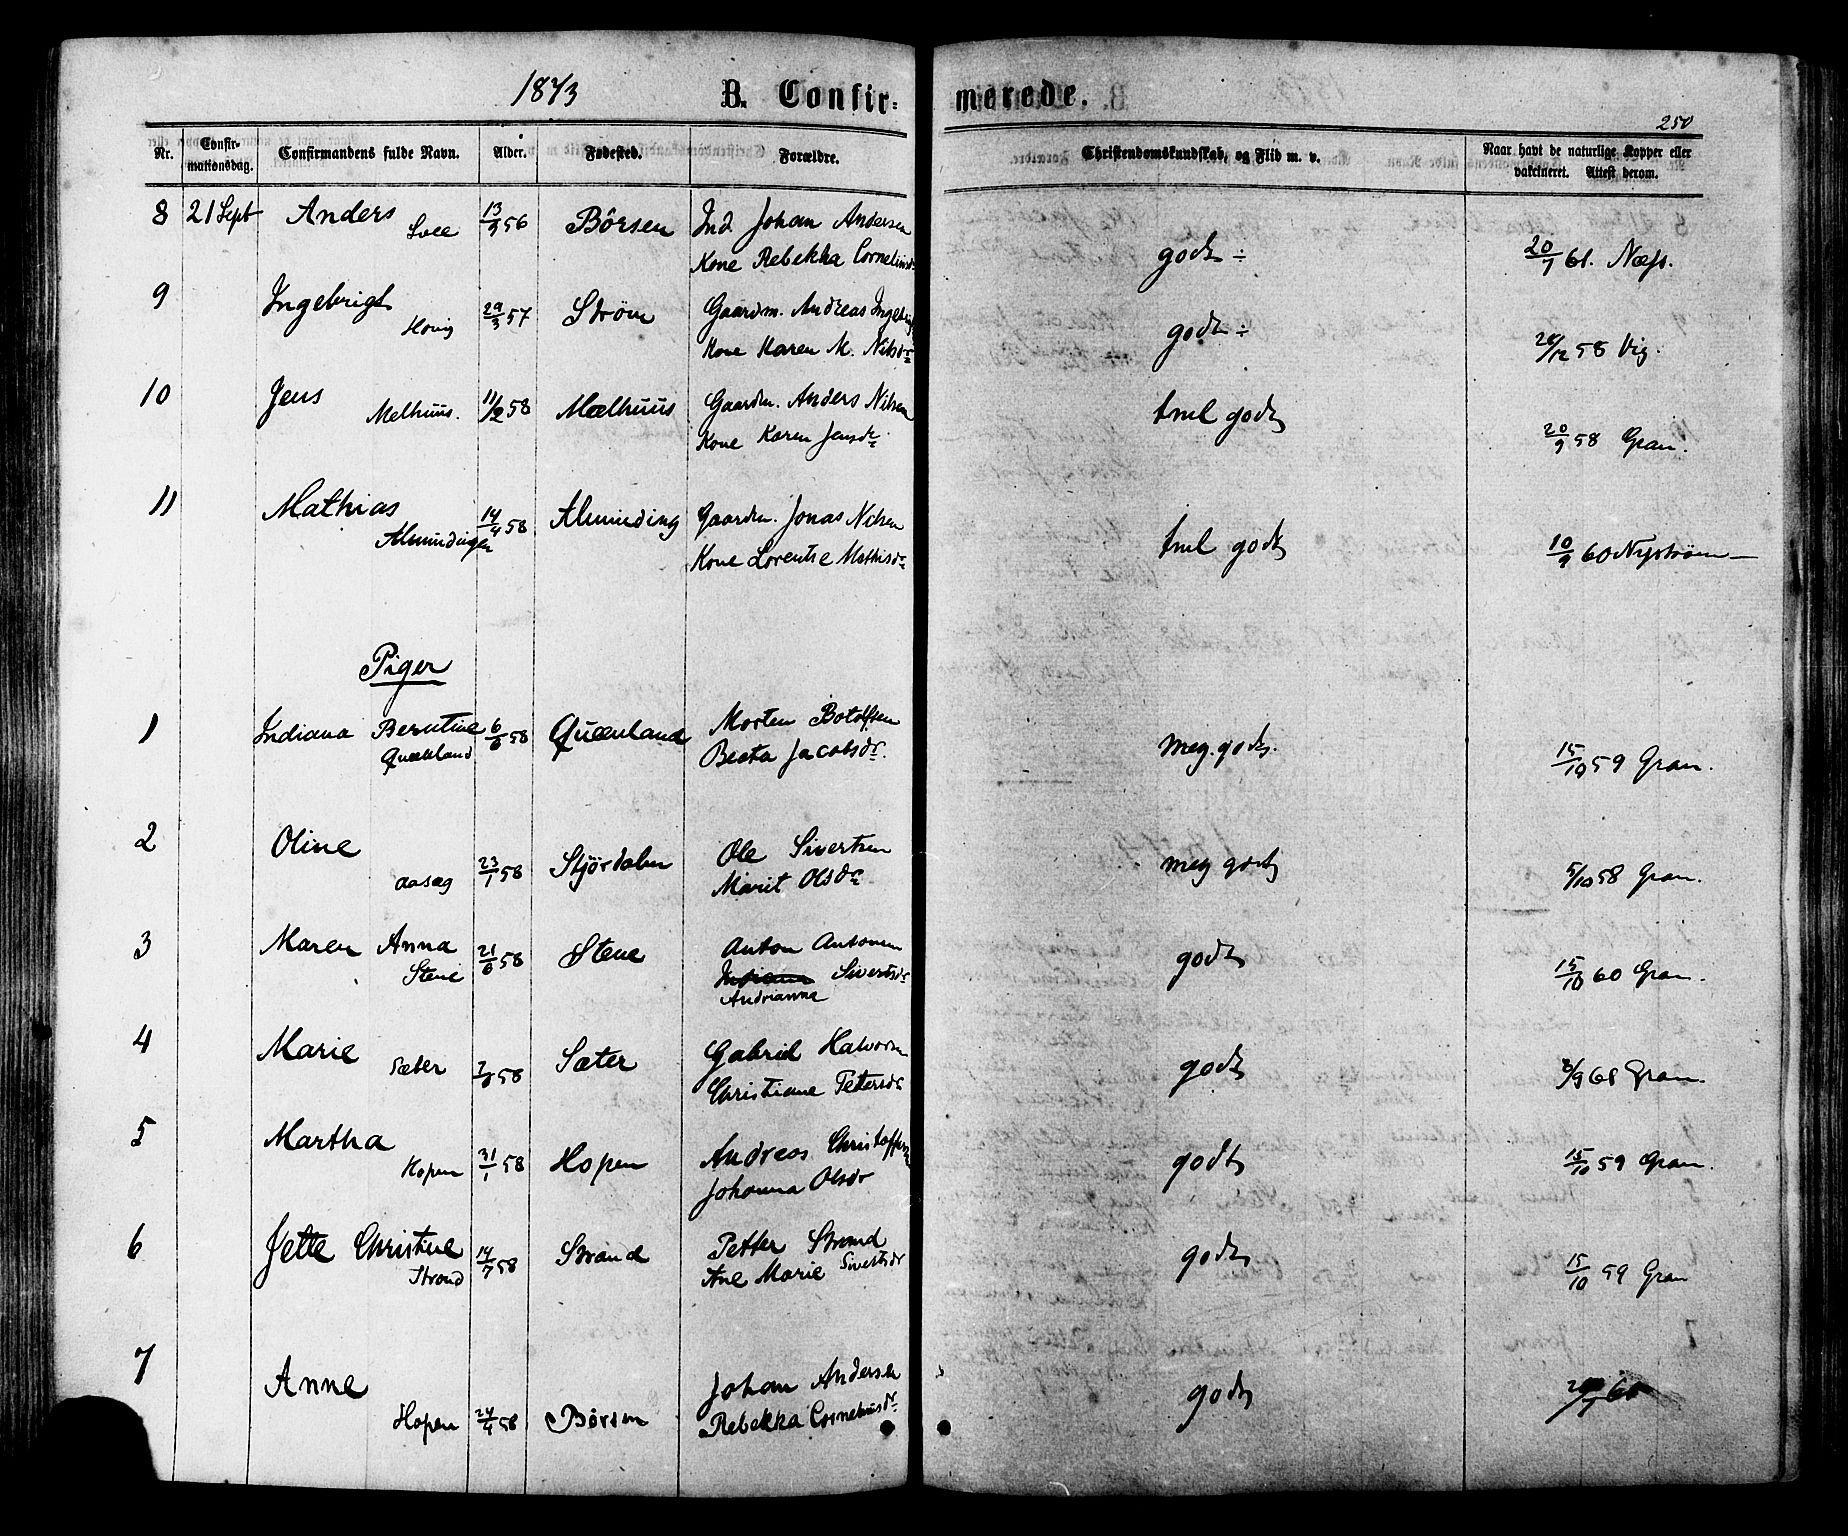 1873 B. Confirmerede.
250
Nr. Confirmationsdag. Confirmandens fulde Navn. Alder. Fødested. Forældre. Christendomskundskab, og Flid m. v. Naar havt de naturlige Kopper eller vakcineret. Attest derom.
8 21 Sept Anders 13/9 56 Börsen Ind Johan Andersen
Kone Rebekka Corneliusdr godt ÷ 20/7 61. Næss.
9 Ingebrigt Hovig 29/3 57 Strøm Gaardm. Andreas
Kone Karen M. Nilsdr godt ÷ /12 58 Vig.
10 Jens Melhuus. 11/2 58 Mælhuus Gaardm. Anders Nilsen
Kone Karen Jensdr tml godt 20/9 58 Gran.
11 Mathias Almindingen 14/4 58 Alminding Gaardm. Jonas Nilsen
Kone Lorentse Mathisdr tml godt 10/9 60 Nystrøm
Piger
1 Indiana Berntine Quænland 6/6 58 Quænland Morten Botolfsen
Beata Jacobsdr. meg. godt. 15/10 59 Gran.
2 Oline Aasæg 23/1 58 Stjørdalen Ole Sivertsen
Marit Olsdr meg godt 5/10 58 Gran.
3 Maren Anna Stene 21/6 58 Stene Anton Antonsen
Sivertsdr
Andrianna godt 15/10 60 Gran.
4 Marie Sæter 58 Sæter Gabriel Halvorsen
Christiane Pettersdr godt Gran.
5 Martha Hopen 31/1 58 Hopen Andreas Christoffersen
Johanna Olsdr godt 15/10 59 Gran.
6 Jette Christine Strand 14/7 58 Strand Petter Strand
Ane Marie Sivertsdr godt 15/10 59 Gran
7 Anne Hopen 24/4 58 Børsen Johan Andersen
Rebekka Corneliusdr godt